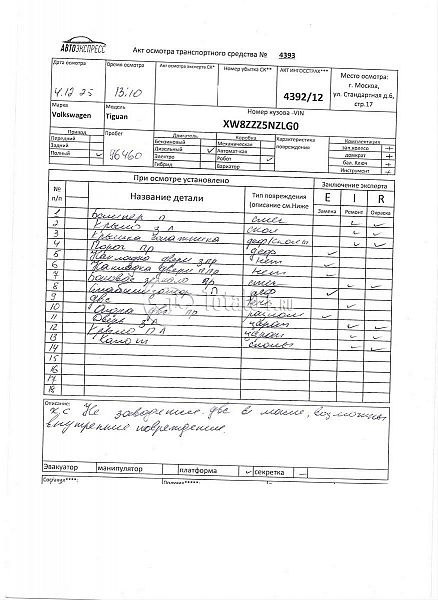 АВТОЭКСПРЕСС
Акт осмотра транспортного средства № 4393
Дата осмотра
4.12 25
Время осмотра
13:10
Акт осмотра эксперта СК*
Номер убытка СК**
АКТ ИНГОССТРАХ***
4392/12
Место осмотра:
г. Москва,
ул. Стандартная д.6,
стр.17
Марка
Volkswagen
Модель
Tiguan
Номер кузова -VIN
XW8ZZZ5NZLG0
Привод
Передний
Задний
Полный ✓
Пробег
96460
Двигатель
Бензиновый
Дизельный ✓
Электро
Гибрид
Коробка
Механическая
Автомат-кая
Робот ✓
Вариатор
Характеристика повреждения
Комплектация
зап.колесо +
домкрат +
бал. Ключ +
Инструмент +
При осмотре установлено
Заключение эксперта
№ п/п
Название детали
Тип повреждения
(описание см.Ниже
E I R
Замена Ремонт Окраска
1 Бампер П
2 Крыло З Л скол ✓ ✓
3 Крышка багажника
4 Порог пр деф/сколы ✓ ✓
5 Накладка двери з пр деф ✓
6 Накладка двери ппр нет ✓
7 Боковое зеркало пр нет
8 пр
9 двс деф ✓
10 Опора двс пр
11 Дверь з Л
12 Крыло П Л царап ✓ ✓
13 Капот царап ✓ ✓
14 сколы ✓ ✓
15
16
17
18
Описание:
Не заводится. двс в возможны
внутренние повреждения.
Эвакуатор манипулятор платформа ✓ секретка –